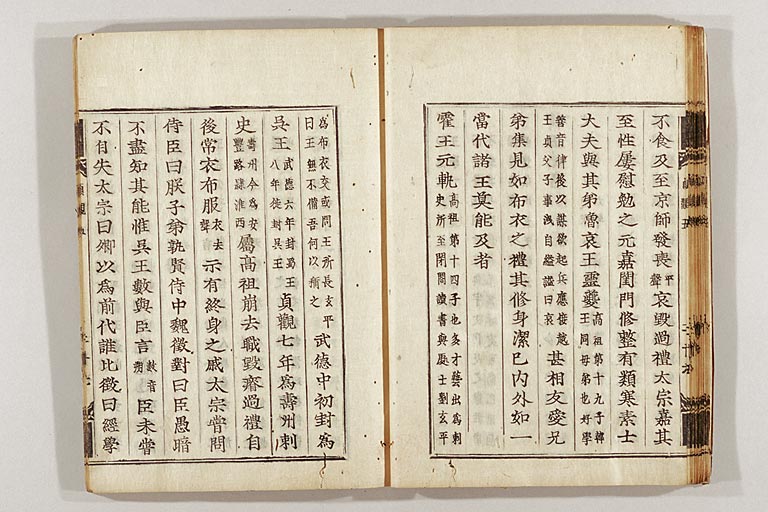 不食及至京師發喪平聲哀毀過禮太宗嘉其
至性屢慰勉之元嘉閨門修整有類寒素士
大夫與其弟魯哀王靈夔高祖第十九子韓王同母弟也好學
善音律後以謀欲起兵應接越王貞父子事洩自縊謚曰哀甚相友愛兄
弟集見如布衣之禮其修身潔已內外如一
當代諸王莫能及者
霍王元軌高祖第十四子也多才藝出爲刺史所至閉閣讀書與處士劉玄平
爲布衣交或問王所長玄平曰王無不備吾何以稱之武德中初封爲
吳王武德六年封蜀王八年徙封吳王貞觀七年爲壽州刺
史壽州今爲安豐路隷淮西屬高祖崩去職毀瘠過禮自
後常衣布服衣去聲示有終身之戚太宗嘗問
侍臣曰朕子弟孰賢侍中魏徵對曰臣愚暗
不盡知其能惟吳王數與臣言數音朔臣未嘗
不自失太宗曰卿以爲前代誰比徵曰經學